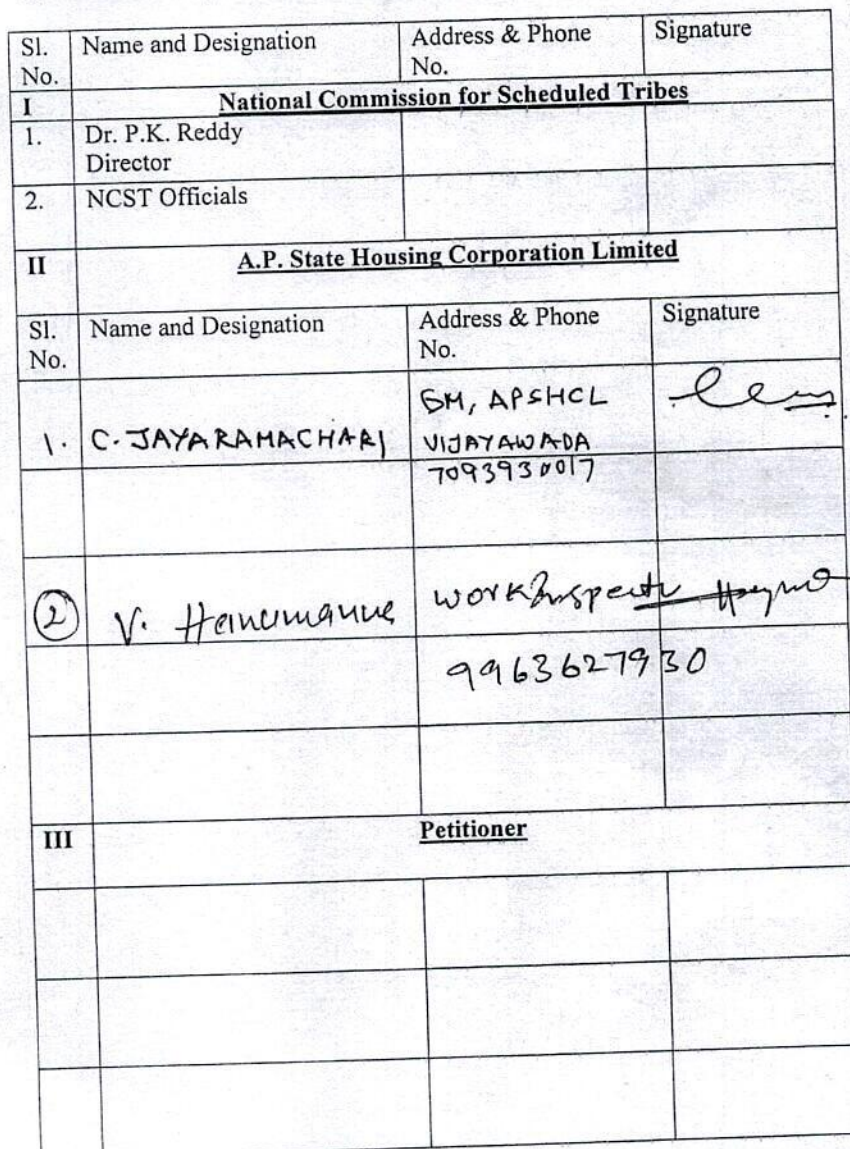 Sl. No. Name and Designation Address & Phone No. Signature
I National Commission for Scheduled Tribes
1. Dr. P.K. Reddy
Director
2. NCST Officials
II A.P. State Housing Corporation Limited
Sl. No. Name and Designation Address & Phone No. Signature
GM, APSHCL
1. C. JAYARAMACHARI VIJAYAWADA
7093930017
2 V. work
9963627930
III Petitioner